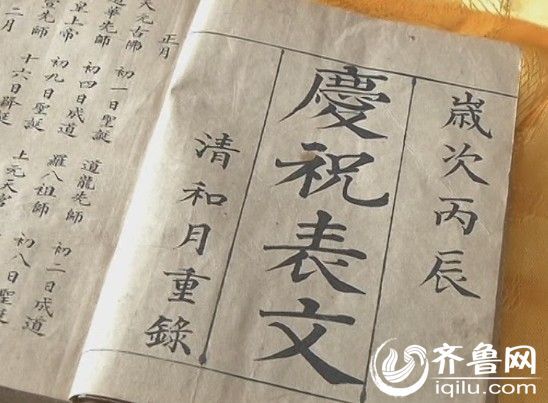 歲次丙辰
慶祝表文
清和月重錄
正月
天元古佛 初一日聖誕 道龍先師 初二日成道
道華先師 初四日成道 羅八祖師 初八日聖誕
皇上帝 初九日聖誕 上元天官
先師 十六日
二月
齐鲁网
iqilu.com